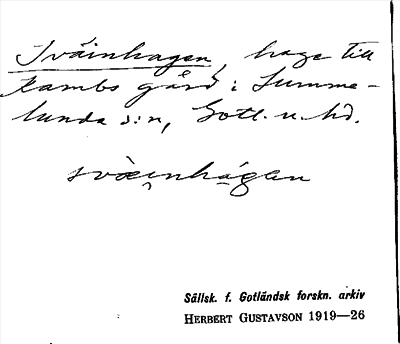 Sväinhagen, hage till
Kambs gård i Lumme-
lunda s:n, Gotl. n. hd.
svæinhagen
Sällsk. f. Gotländsk forskn. arkiv
HERBERT GUSTAVSON 1919—26